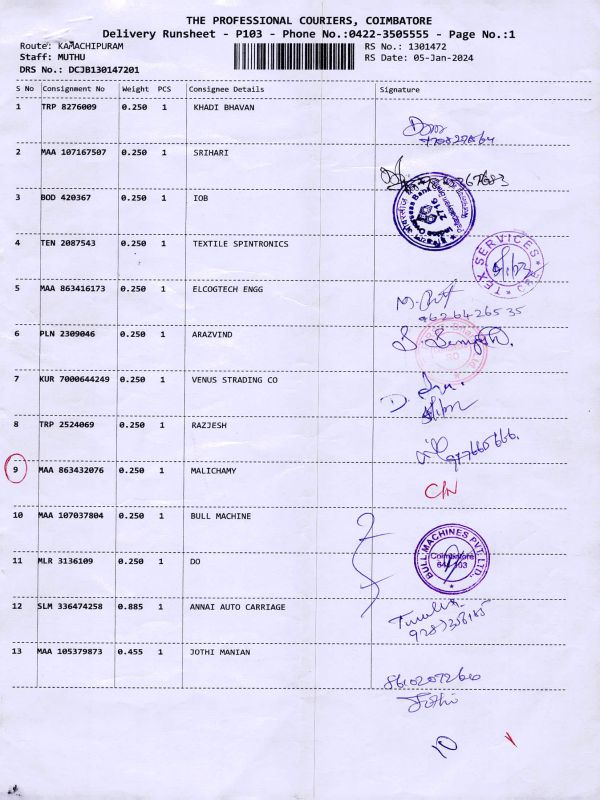 THE PROFESSIONAL COURIERS, COIMBATORE
Delivery Runsheet - P103 - Phone No.:0422-3505555 - Page No.:1
Route: KAMACHIPURAM RS No.: 1301472
Staff: MUTHU RS Date: 05-Jan-2024
DRS No.: DCJB130147201
S No Consignment No Weight PCS Consignee Details Signature
1 TRP 8276009 0.250 1 KHADI BHAVAN
2 MAA 107167507 0.250 1 SRIHARI
3 BOD 420367 0.250 1 IOB
4 TEN 2087543 0.250 1 TEXTILE SPINTRONICS
TEX SERVICES
5 MAA 863416173 0.250 1 ELCOGTECH ENGG
9626426535
6 PLN 2309046 0.250 1 ARAZVIND
7 KUR 7000644249 0.250 1 VENUS STRADING CO
8 TRP 2524069 0.250 1 RAZJESH
9 MAA 863432076 0.250 1 MALICHAMY C/N
10 MAA 107037804 0.250 1 BULL MACHINE
BULL MACHINES PVT. LTD.,
Coimbatore
641 103
11 MLR 3136109 0.250 1 DO
12 SLM 336474258 0.885 1 ANNAI AUTO CARRIAGE
13 MAA 105379873 0.455 1 JOTHI MANIAN
Jothi
10